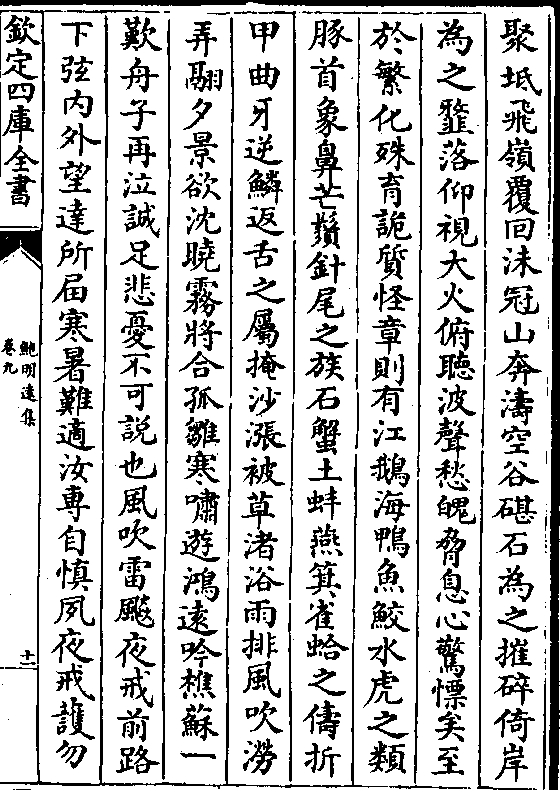 聚坻飛嶺覆回沬冠山奔濤空谷碪石為之摧碎倚岸
為之韲落仰視大火俯聽波聲愁魄脅息心驚慓矣至
於繁化殊育詭質怪章則有江鵝海鴨魚鮫水虎之類
豚首象鼻芒鬚針尾之族石蟹土蚌燕箕雀蛤之儔折
甲曲牙逆鱗返舌之屬掩沙漲被草渚浴雨排風吹澇
弄翮夕景欲沈曉霧將合孤雛寒嘯遊鴻遠吟樵蘇一
歎舟子再泣誠足悲憂不可説也風吹雷飈夜戒前路
下弦内外望達所屆寒暑難適汝專自慎夙夜戒護勿
欽定四庫全書
鮑明遠集
卷九
十一